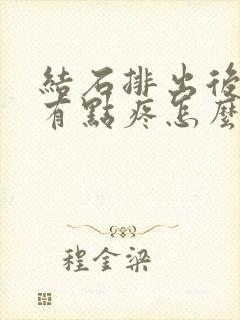 結石排出後
有點疼怎麼
程金梁